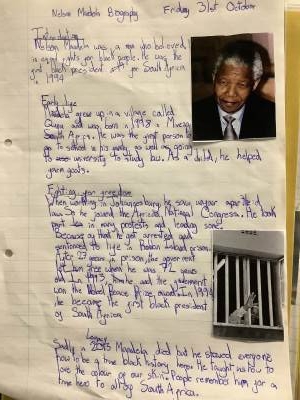 Nelson Mandela Biography Friday 31st October
Introduction
Nelson Mandela was a man who believed
in equal rights for black people. He was the
first black president for South Africa
in 1994
Early life
Mandela grew up in a village called
Qunu and was born in 1918 in Mvezo,
South Africa. He was the first person to
go to school in his family, as well as going
to university to study law. As a child, he helped
goats.
Fighting for freedom
When working in Johannesburg, he saw apartheid
laws. So he joined the African National Congress. He took
part in many protests and leading some.
Because of that he got arrested and
sentenced to life in Robben Island prison.
After 27 years in prison, the government
let him free when he was 72 years
old. In 1993, him and the government
won the Nobel Peace Prize award. In 1994,
he became the first black president
of South Africa.
Legacy
Sadly in Mandela died but he showed everyone
how to be a true black history hero. He taught us how to
love the colour of our skin. People remember him for a
true hero to all of South Africa.